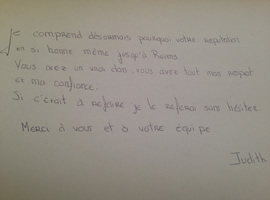 Je comprend désormais pourquoi votre réputation
est si bonne même jusqu'à Reims.
Vous avez un vrai don, vous avez tout mon respect
et ma confiance.
Si c'était à refaire je le referai sans hésiter.
Merci à vous et à votre équipe
Judith